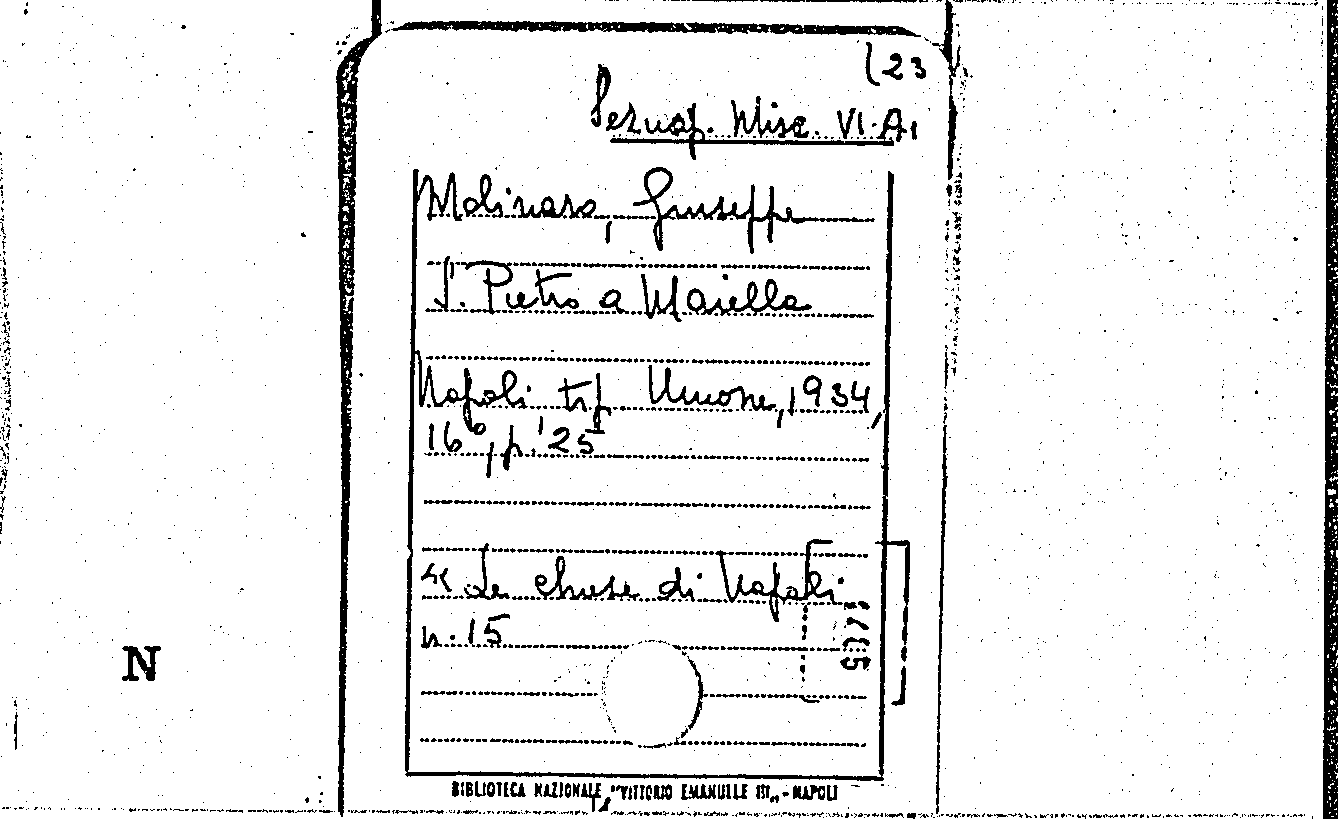 (23
Seznap. Misc. VI.A.
Molinaro, Giuseppe
S. Pietro a Maiella
Napoli tip. Unione, 1934,
16°, p. 25
« Le chiese di Napoli
n. 15
N
BIBLIOTECA NAZIONALE "VITTORIO EMANUELE III„ - NAPOLI